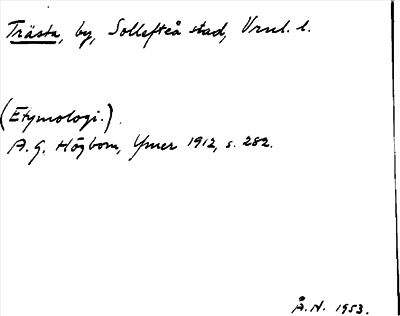 Trästa, by, Sollefteå stad, Vrml. l.
(Etymologi.).
A. G. Högbom, Ymer 1912, s. 282.
Å. N. 1953.